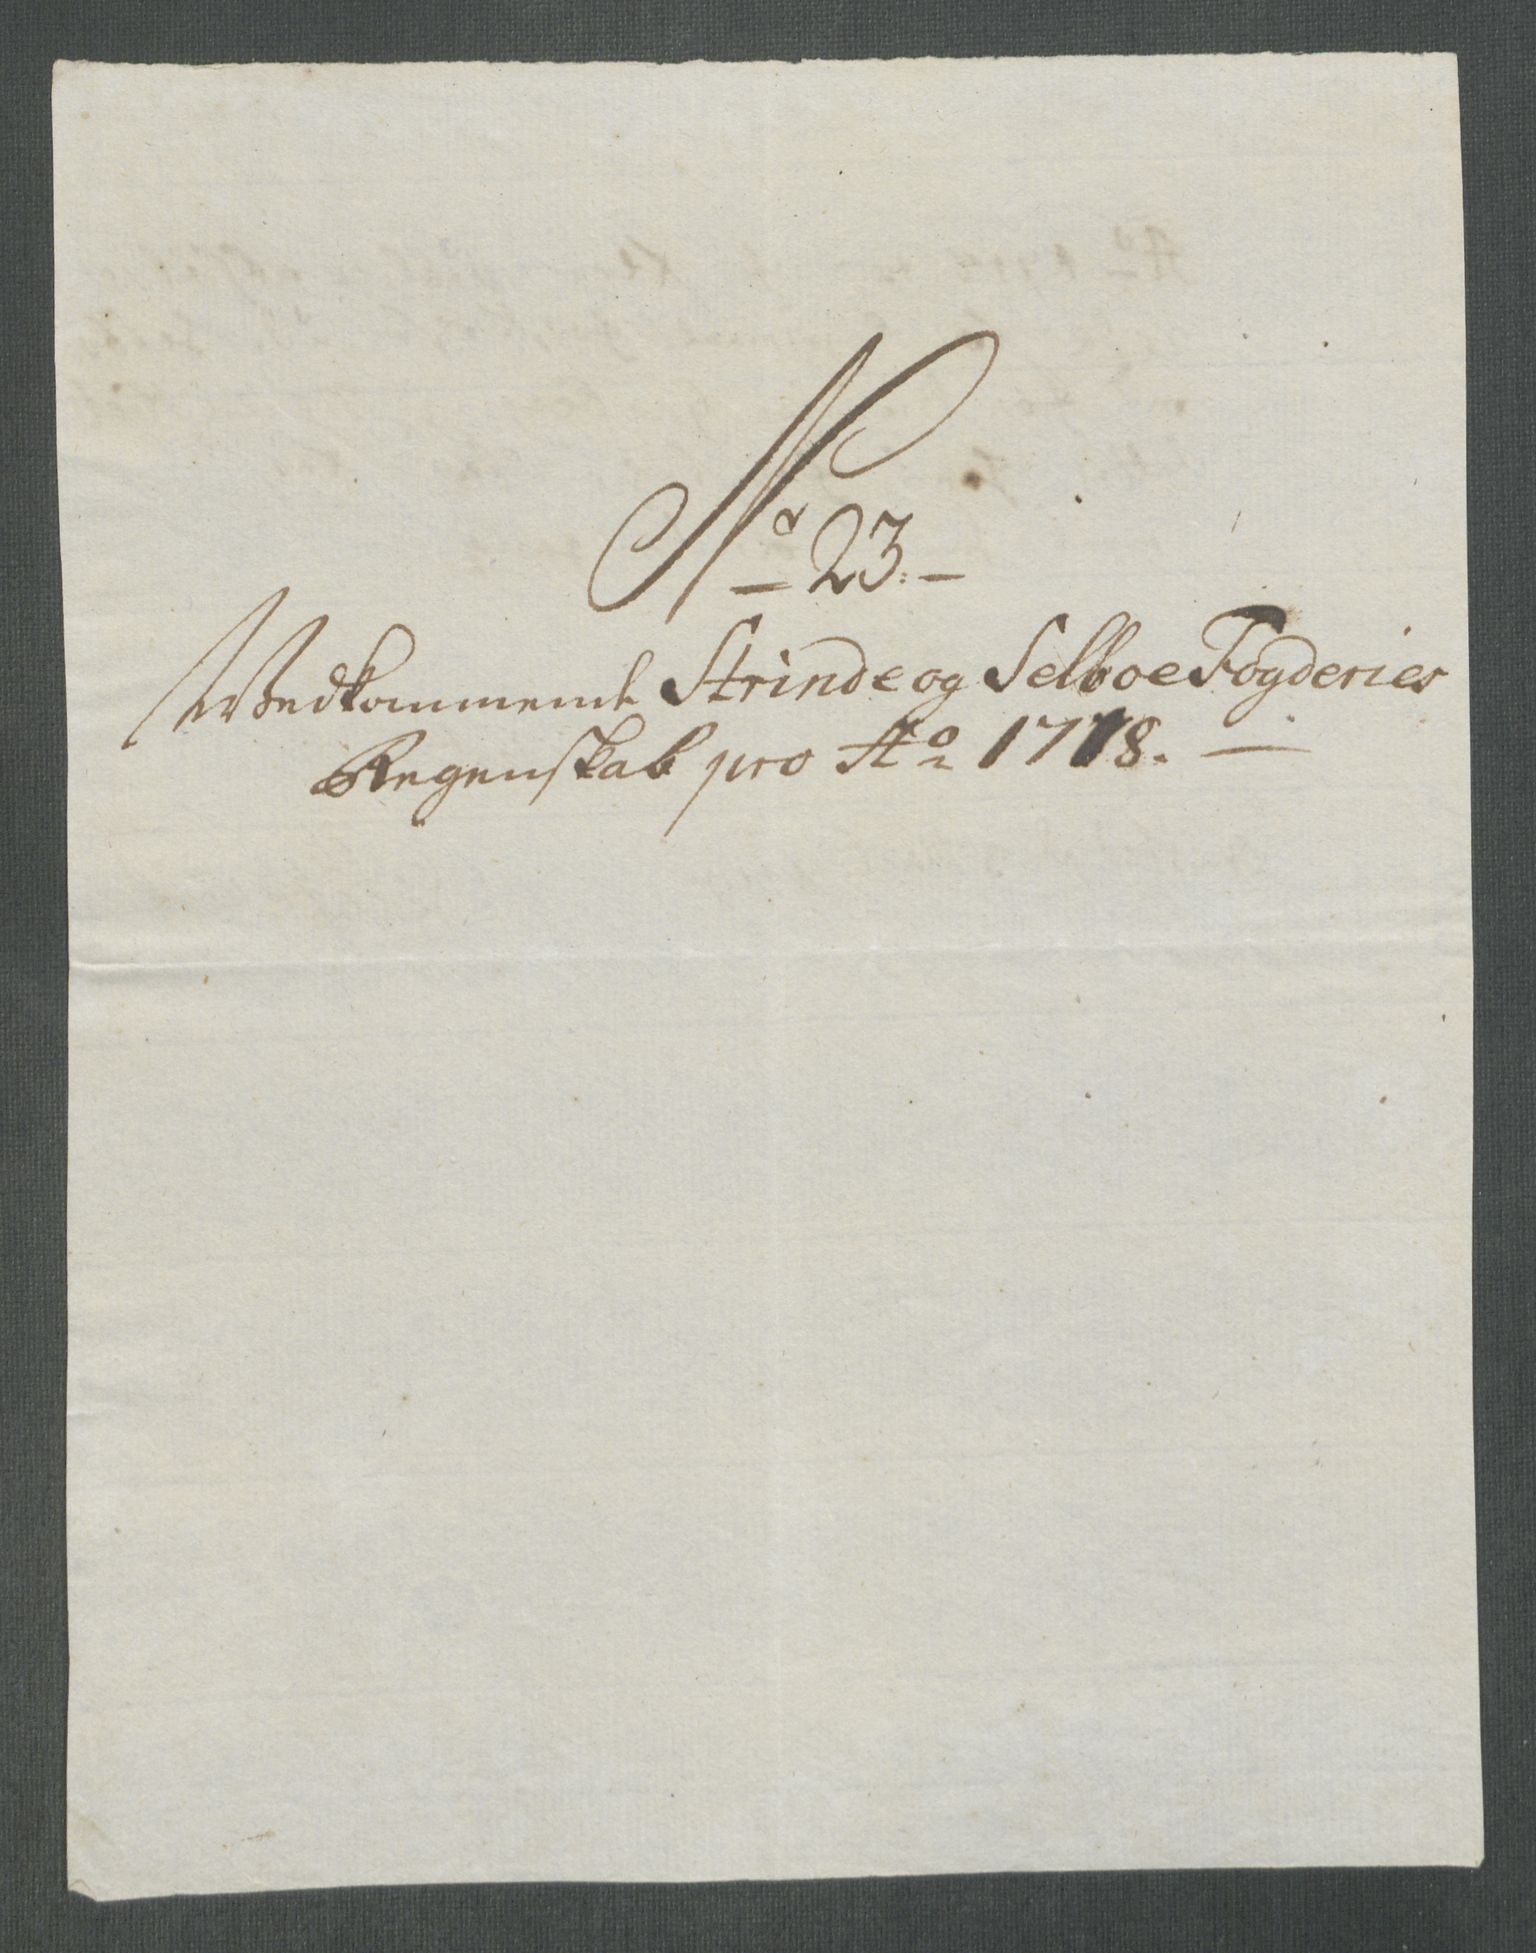 No 23. —
Vedkommende Strinde og Selboe Fogderies
Regenskab pro Ao 1718. —